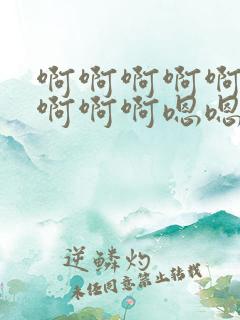 啊啊啊啊啊
啊啊啊嗯嗯
逆鳞灼
未经同意禁止转载